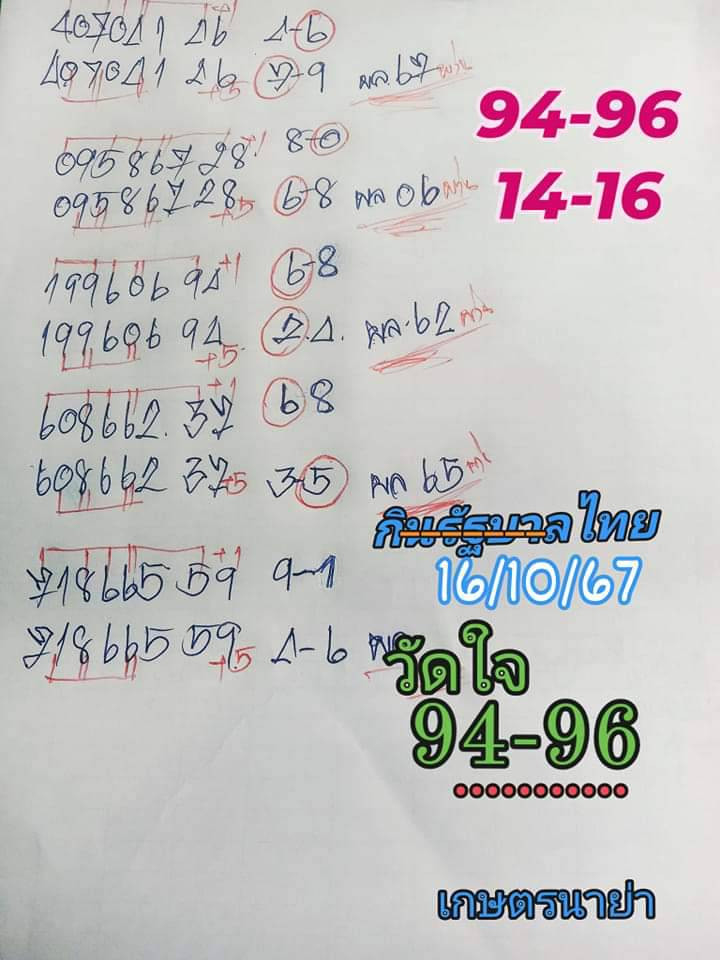 407041 26 4-6
94-96
497041 26 +5 7-9 ผล.67 ผ่าน
14-16
095867 28 +1 8-0
095867 28 +5 6-8 ผล 06 ผ่าน
199606 94 +1 6-8
199606 94 +5 2.4. ผล.62 ผ่าน
608662. 37 +1 68
608662 37 +5 3-5 ผล 65 ผ่าน
กินรัฐบาลไทย
16/10/67
718665 59 +1 9-1
718665 59 +5 4-6 ผล
วัดใจ
94-96
เกษตรนาย่า